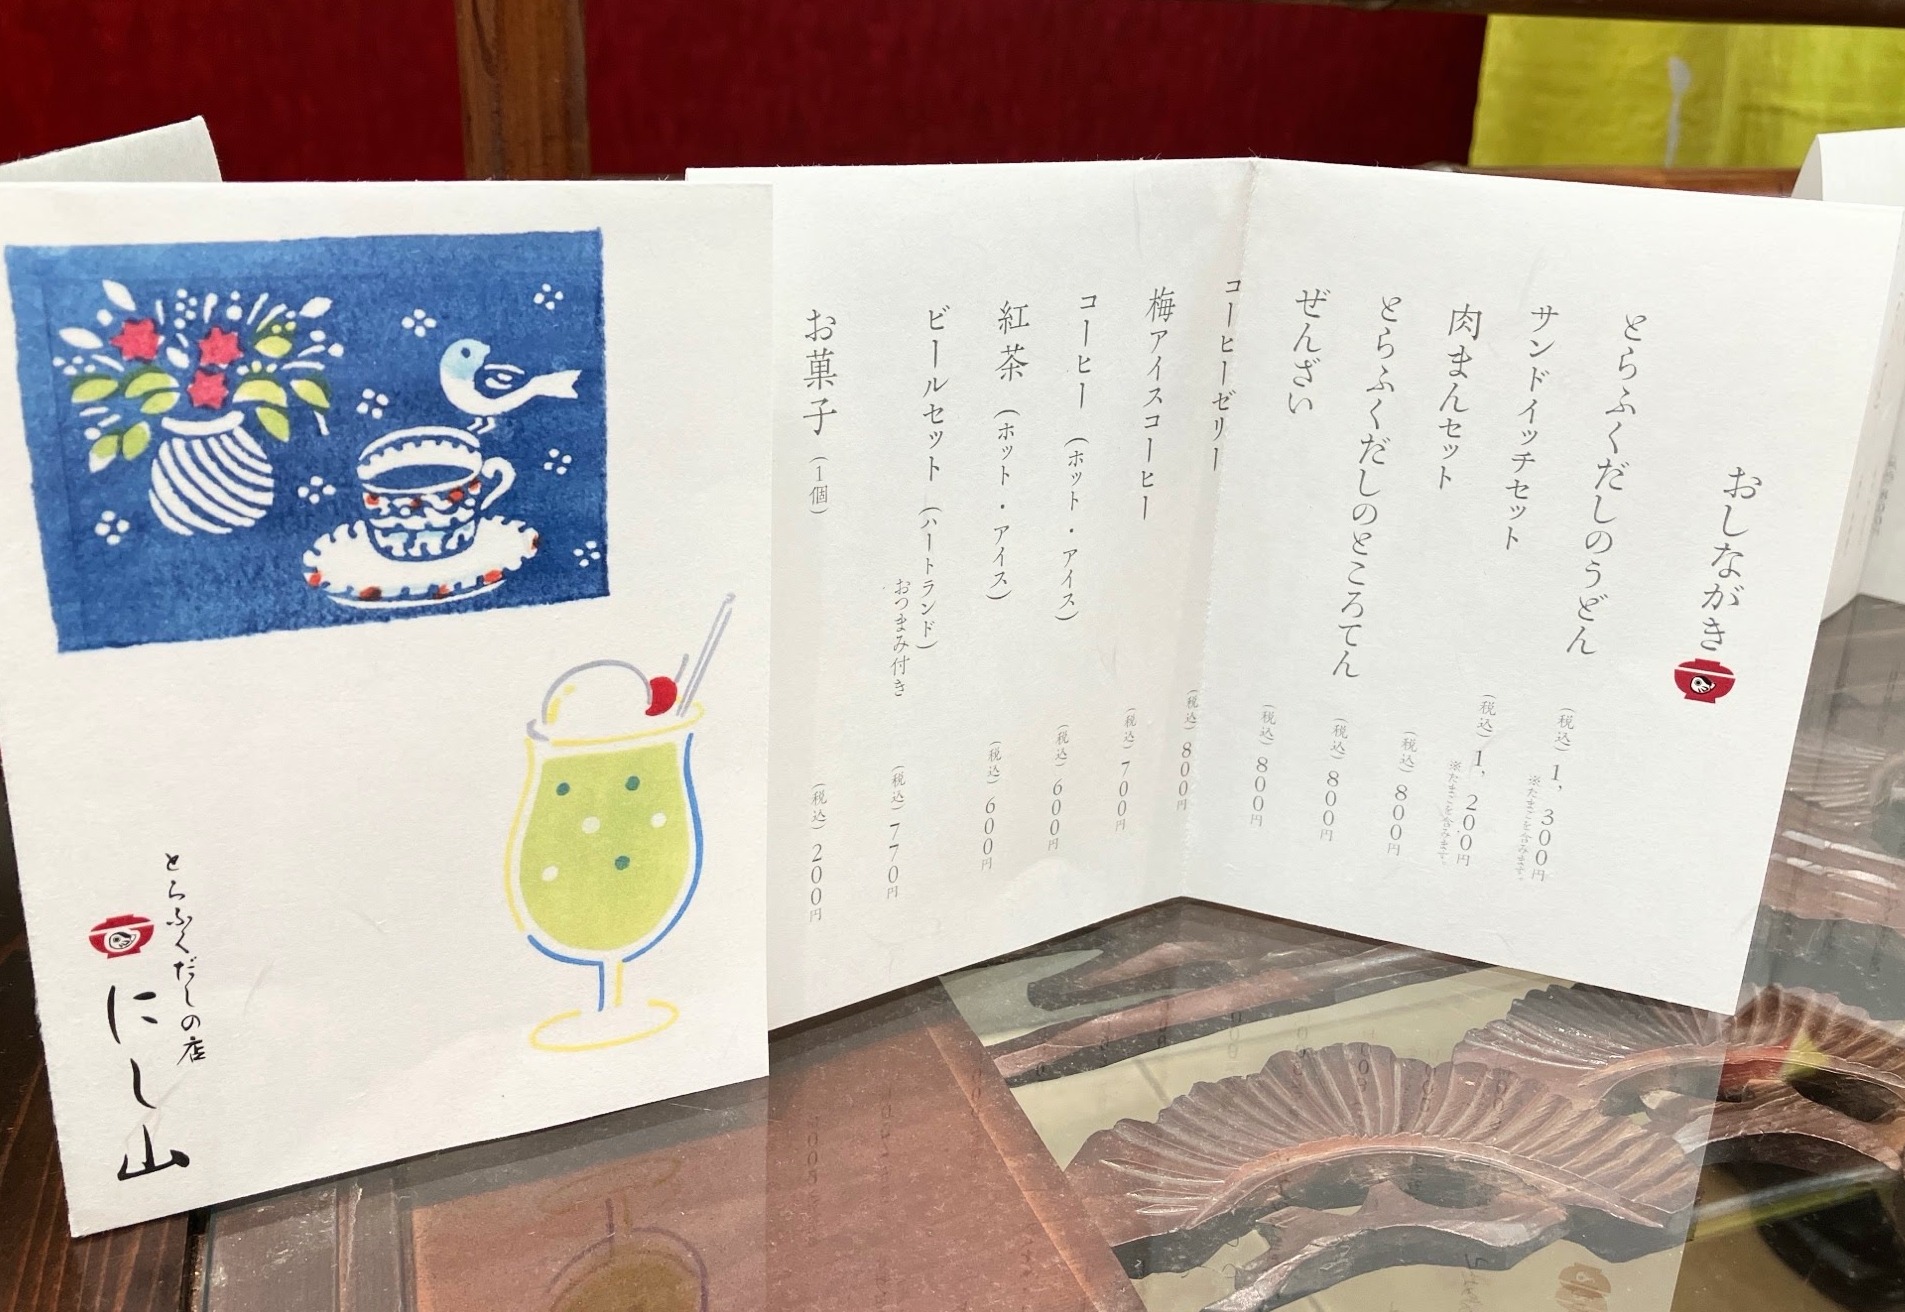 おしながき
とらふくだしのうどん (税込) 1,300円
※たまごを含みます。
サンドイッチセット (税込) 1,200円
※たまごを含みます。
肉まんセット (税込) 800円
とらふくだしのところてん (税込) 800円
ぜんざい (税込) 800円
コーヒーゼリー (税込) 800円
梅アイスコーヒー (税込) 700円
コーヒー (ホット・アイス) (税込) 600円
紅茶 (ホット・アイス) (税込) 600円
ビールセット (ハートランド) (税込) 770円
おつまみ付き
お菓子 (1個) (税込) 200円
とらふくだしの店
にし山